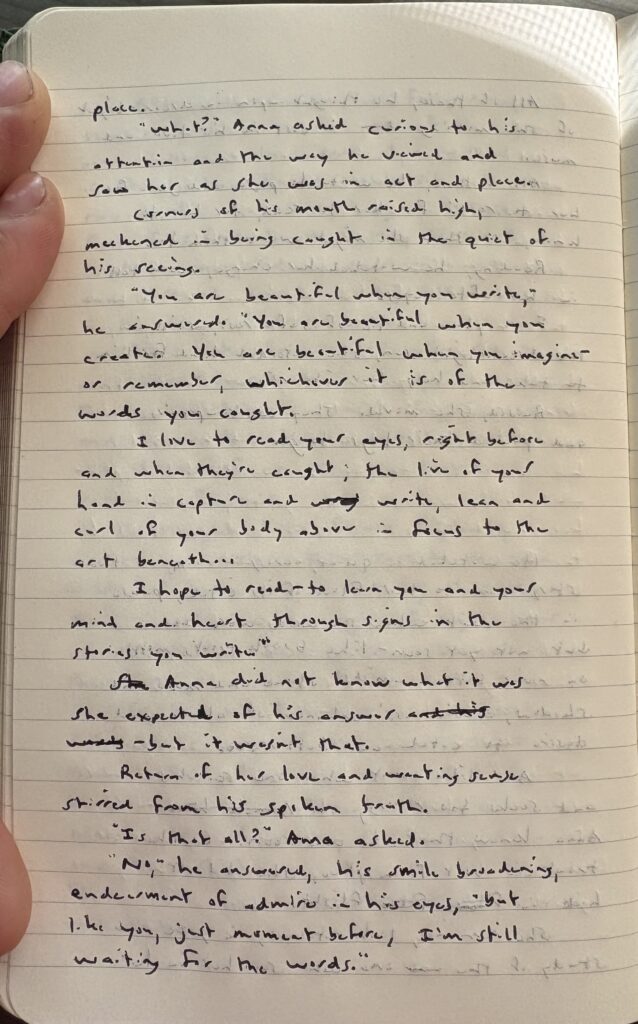 place.
"What?" Anna asked curious to his
attention and the way he viewed and
saw her as she was in act and place.
Corners of his mouth raised high,
meekened in being caught in the quiet of
his seeing.
"You are beautiful when you write,"
he answered. "You are beautiful when you
create. You are beautiful when you imagine-
or remember, whichever it is of the
words you caught.
I love to read your eyes, right before
and when they're caught; the line of your
hand in capture and write, lean and
curl of your body above in focus to the
art beneath...
I hope to read-to learn you and your
mind and heart through signs in the
stories you write."
She Anna did not know what it was
she expected of his answer and his
words -but it wasn't that.
Return of her love and wanting sense
stirred from his spoken truth.
"Is that all?" Anna asked.
"No," he answered, his smile broadening,
endearment of admire in his eyes, "but
like you, just moment before, I'm still
waiting for the words."